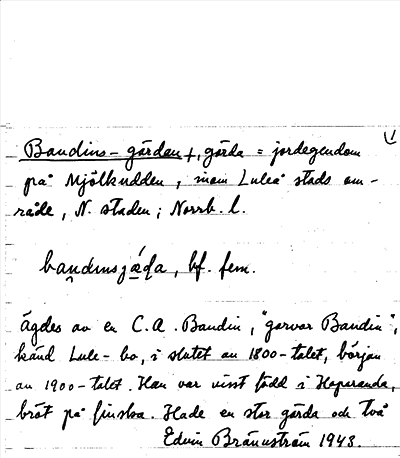 1
Bandins-gården +, gärda = jordegendom
på Mjölkudden, inom Luleå stads om-
råde, N. staden; Norrb. l.
bandinsjæ̀ɖa, bf. fem.
Ägdes av en C.A. Bandin, "garvar Bandin",
känd Lule-bo, i slutet av 1800-talet, början
av 1900-talet. Han var visst född i Haparanda,
bröt på finska. Hade en stor gärda och två
Edvin Brännström 1943.